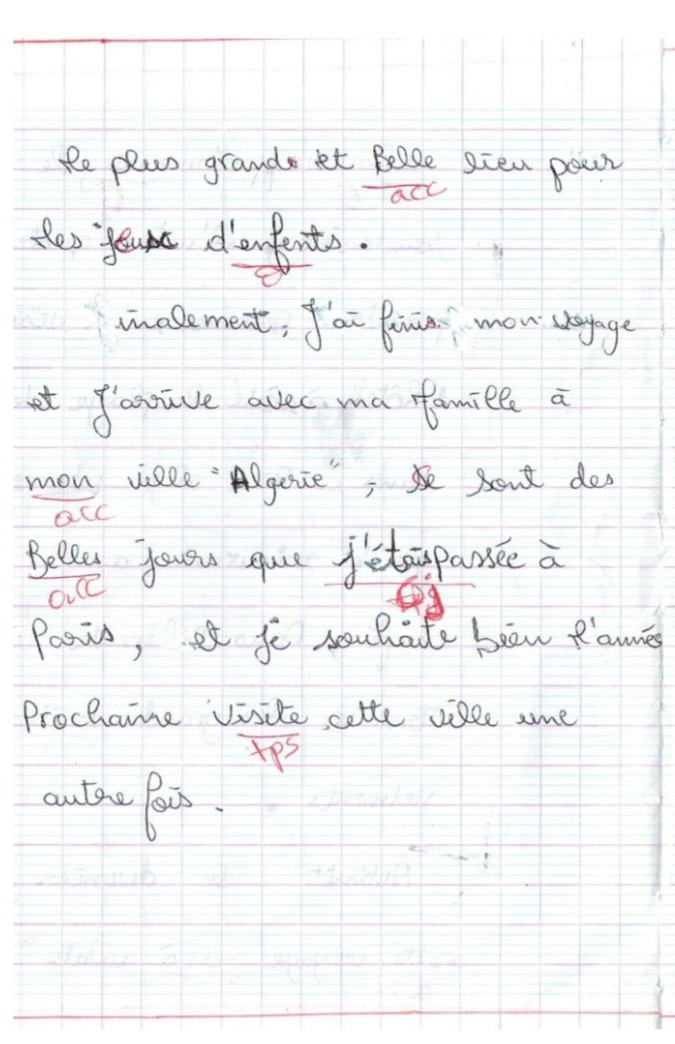 le plus grande et Belle lieu pour
acc
les jeux d'enfents.
inalement, J'ai finis mon voyage
et J'arrive avec ma famille à
mon ville "Algerie", se sont des
acc
Belles jours que j'étais passée à
acc
Paris, et je souhaite bien l'année
Prochainne visite cette ville une
tps
autre fois.